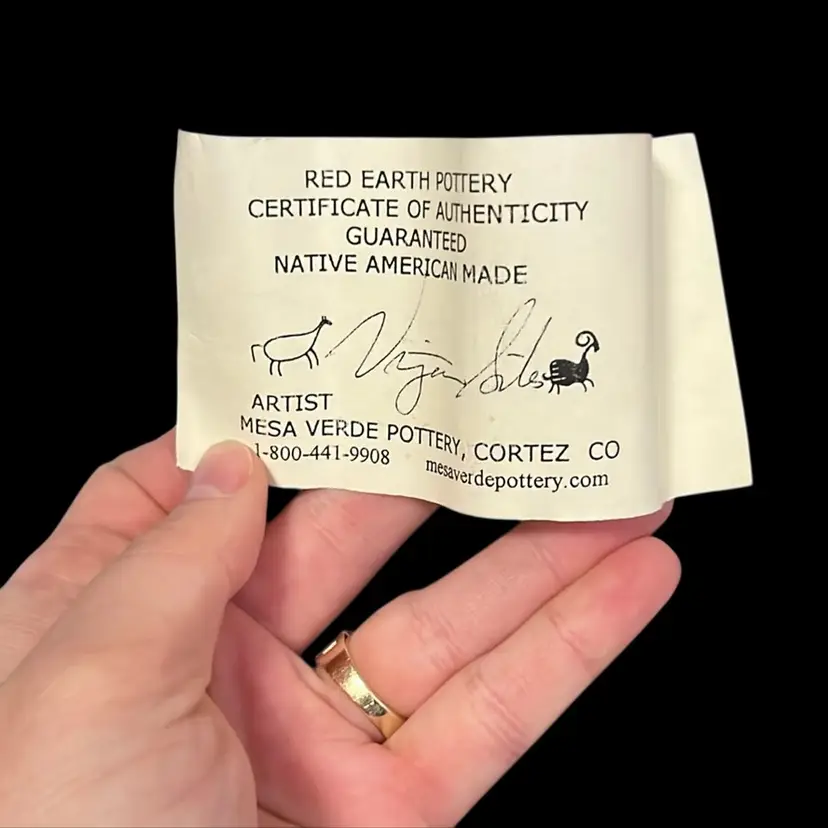 RED EARTH POTTERY
CERTIFICATE OF AUTHENTICITY
GUARANTEED
NATIVE AMERICAN MADE
ARTIST
MESA VERDE POTTERY, CORTEZ CO
1-800-441-9908 mesaverdepottery.com